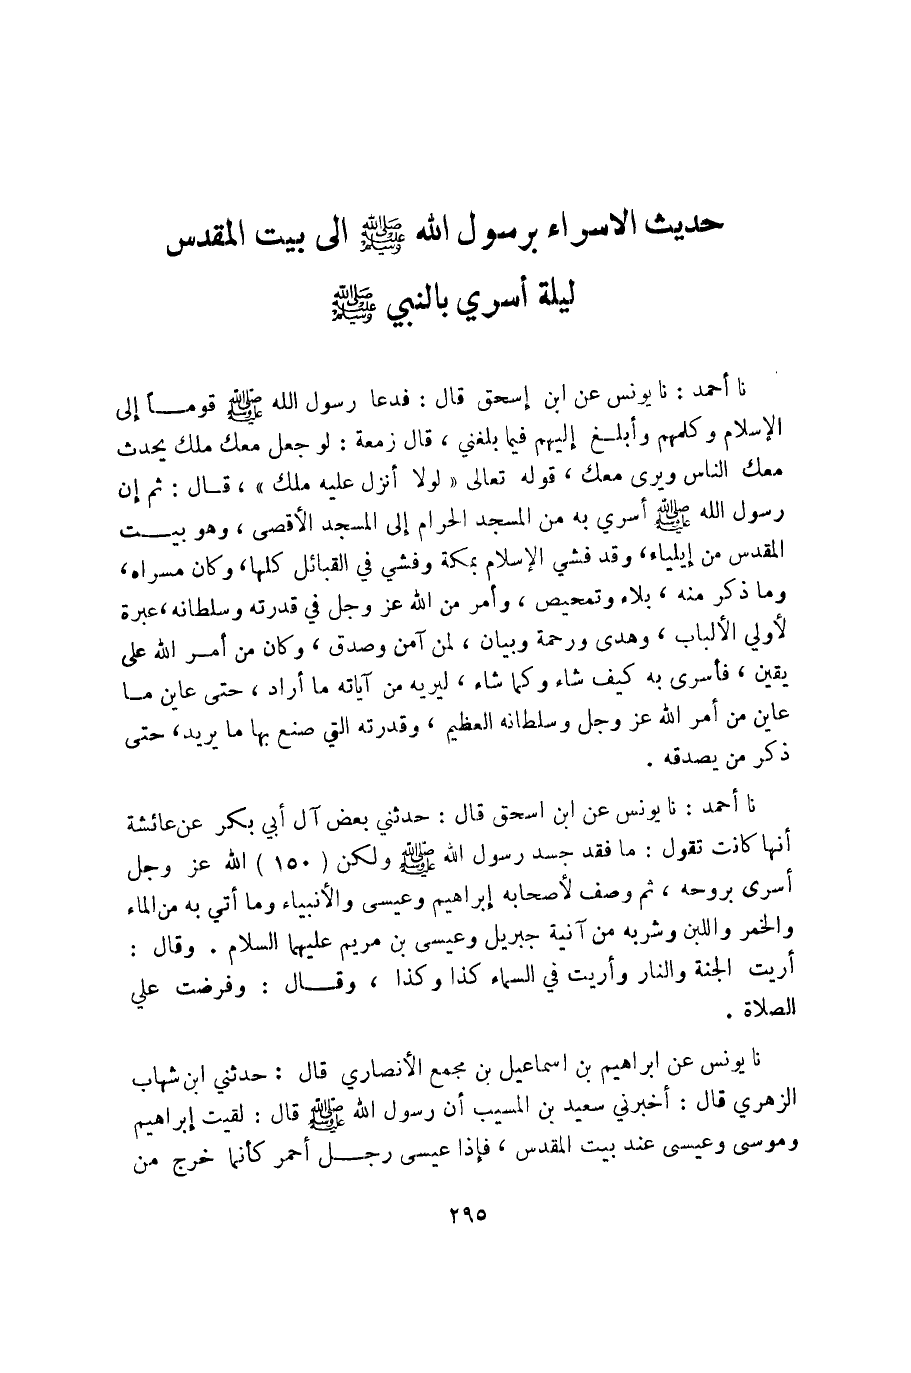 حديث الاسراء برسول الله ﷺ الى بيت المقدس
ليلة أسري بالنبي ﷺ
نا أحمد : نا يونس عن ابن إسحق قال : فدعا رسول الله ﷺ قومــاً إلى
الإسلام وكلمهم وأبلــغ إليهم فيما بلغني ، قال زمعة : لو جعل معك ملك يحدث
معك الناس ويرى معك ، قوله تعالى « لولا أنزل عليه ملك » ، قــال : ثم إن
رسول الله ﷺ أسري به من المسجد الحرام إلى المسجد الأقصى ، وهو بيــت
المقدس من إيلياء، وقد فشي الإسلام بمكة وفشي في القبائل كلها، وكان مسراه،
وما ذكر منه ، بلاء وتمحيص ، وأمر من الله عز وجل في قدرته وسلطانه ،عبرة
لأولي الألباب ، وهدى ورحمة وبيان ، لمن آمن وصدق ، وكان من أمــر الله على
يقين ، فأسرى به كيف شاء وكما شاء ، ليريه من آياته ما أراد ، حتى عاين مــا
عاين من أمر الله عز وجل وسلطانه العظيم ، وقدرته التي صنع بها ما يريد، حتى
ذكر من يصدقه .
نا أحمد : نا يونس عن ابن اسحق قال : حدثني بعض آل أبي بكر عن عائشة
أنها كانت تقول : ما فقد جسد رسول الله ﷺ ولكن ( ١٥٠ ) الله عز وجل
أسرى بروحه ، ثم وصف لأصحابه إبراهيم وعيسى والأنبياء وما أتي به من الماء
والخمر واللبن وشربه من آنية جبريل وعيسى بن مريم عليهما السلام . وقال :
أريت الجنة والنار وأريت في السماء كذا وكذا ، وقــال : وفرضت علي
الصلاة .
نا يونس عن ابراهيم بن اسماعيل بن مجمع الأنصاري قال : حدثني ابن شهاب
الزهري قال : أخبرني سعيد بن المسيب أن رسول الله ﷺ قال : لقيت إبراهيم
وموسى وعيسى عند بيت المقدس ، فإذا عيسى رجــل أحمر كأنما خرج من
٢٩٥